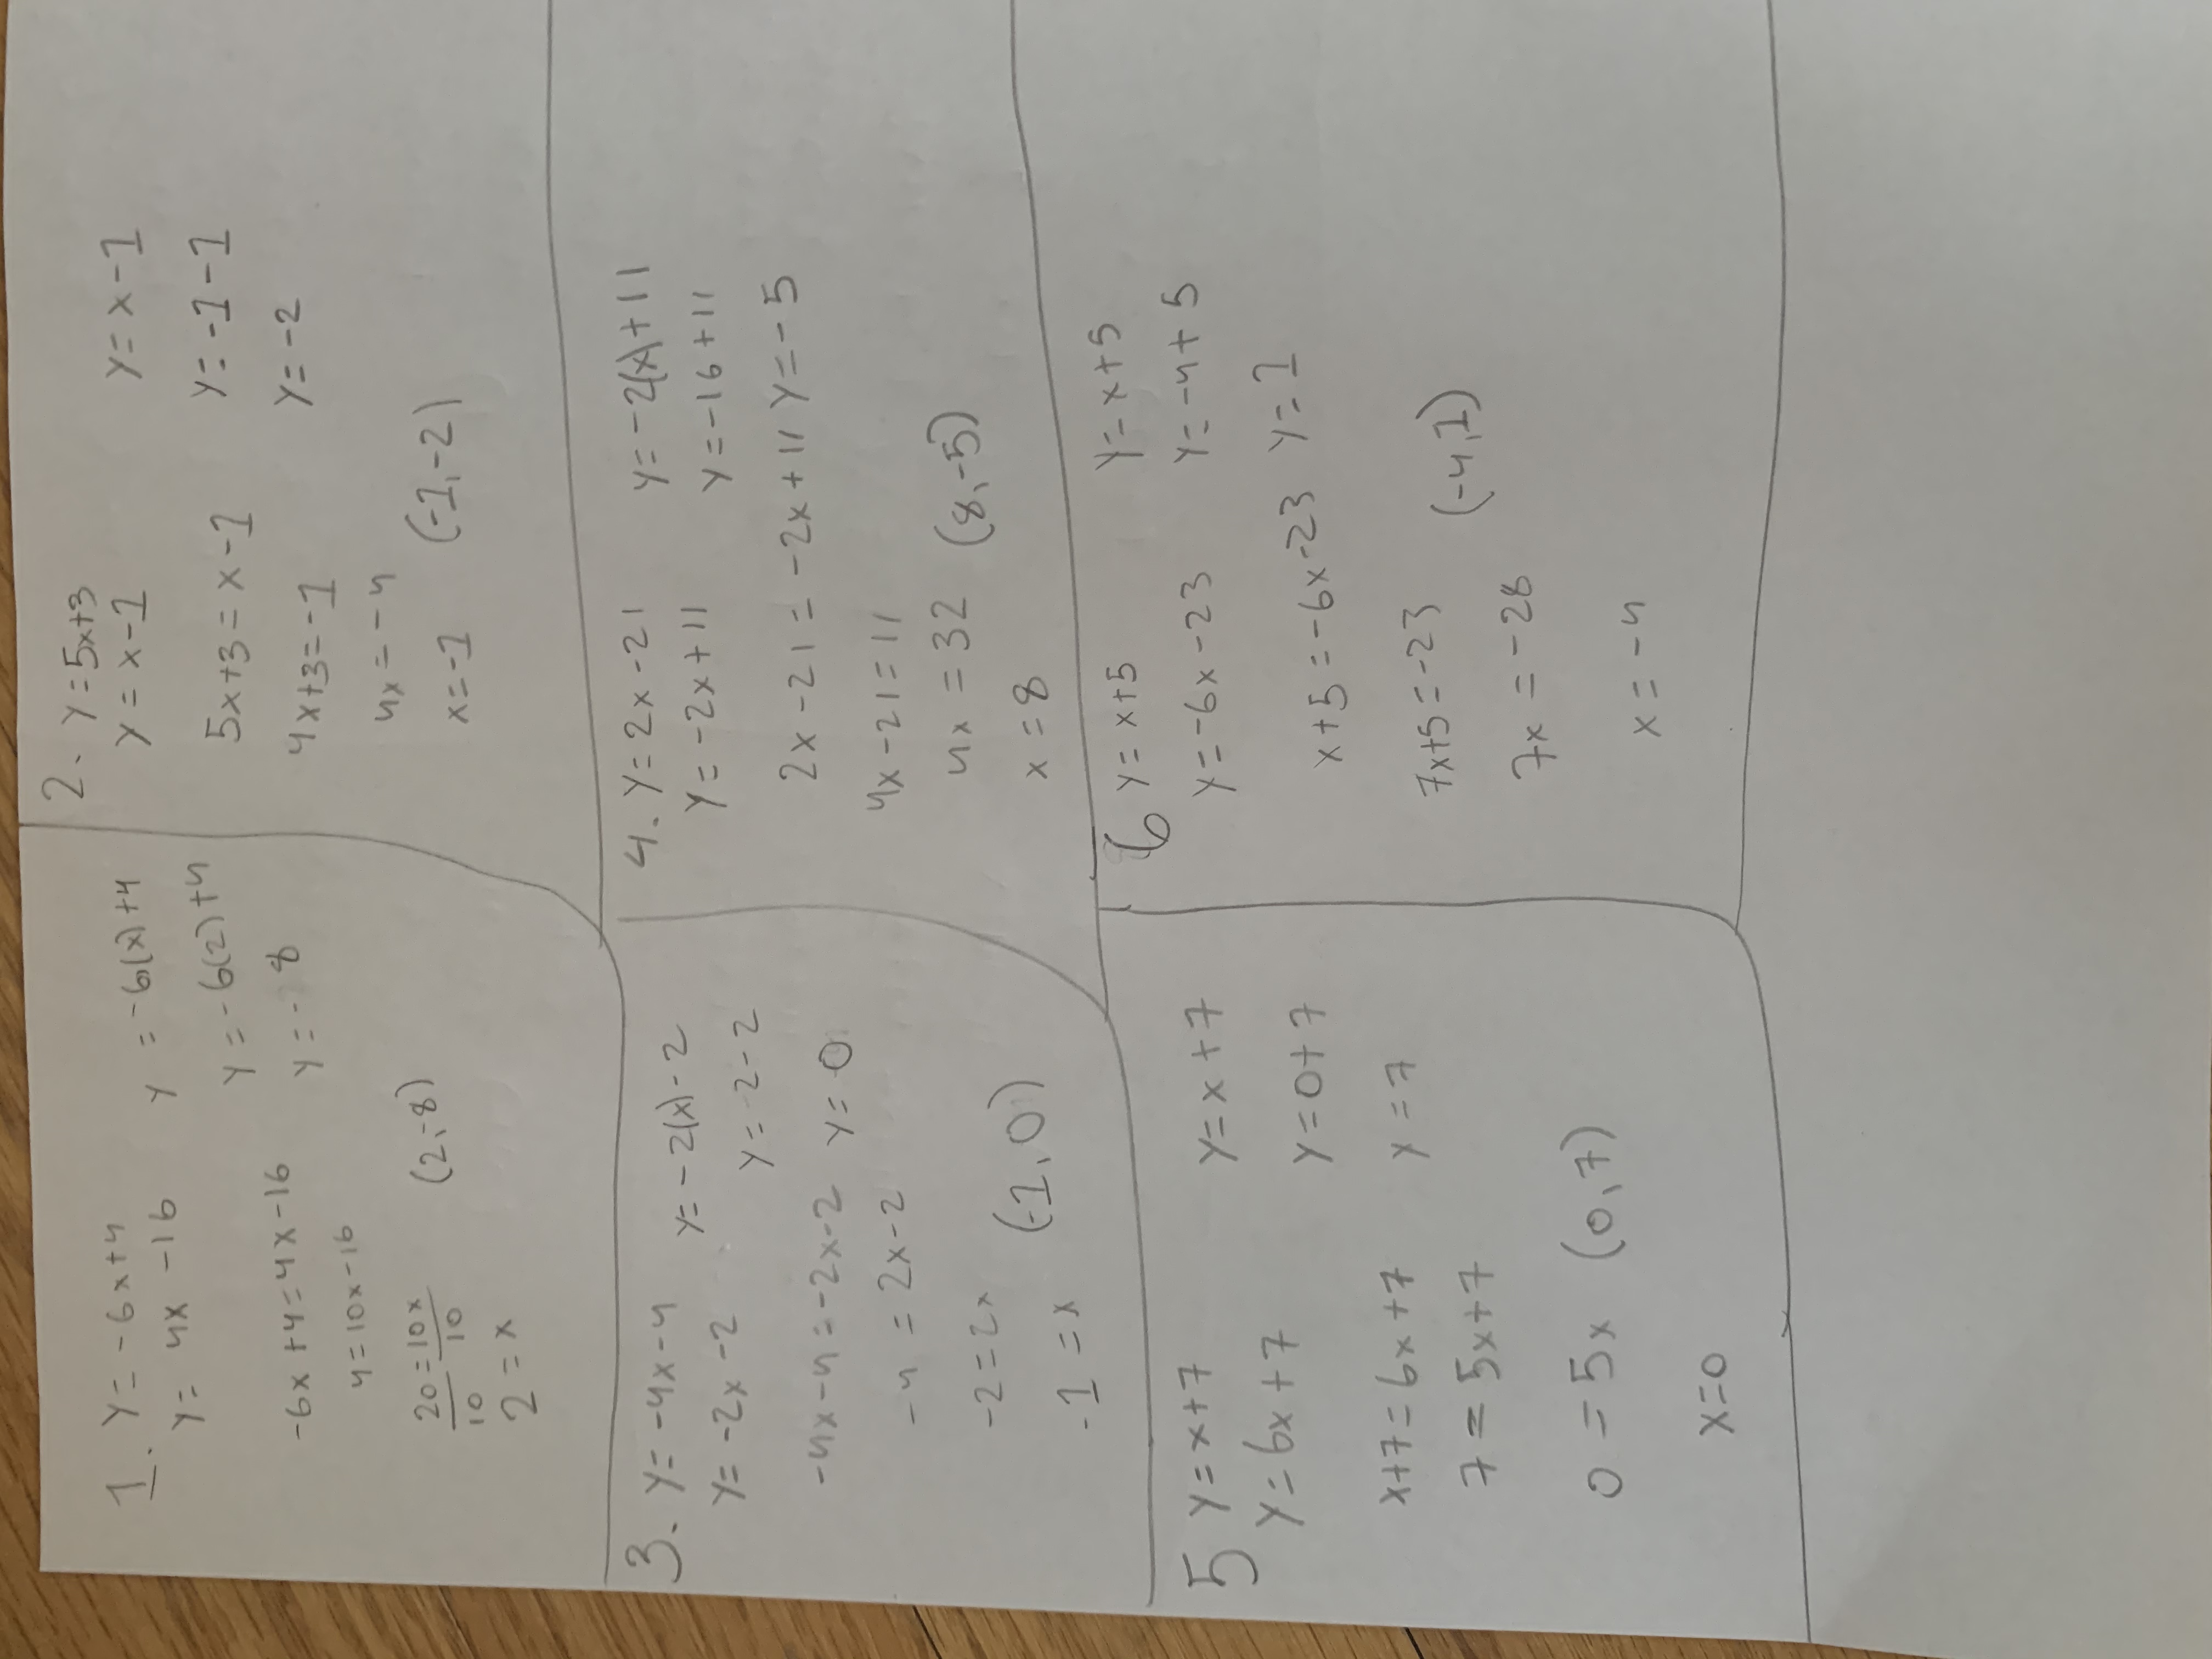 1. y = -6x+4
y = 4x -16
-6x +4=4x-16
4=10x-16
20=10x
10 10
2 = x
y = -6(x)+4
y = -6(2)+4
y = -8
(2,-8)
2. y=5x+3
y = x-1
5x+3=x-1
4x+3=-1
4x=-4
x=-1
y= x-1
y= -1-1
y= -2
(-1,-2)
3. y= -4x-4
y= -2x -2
-4x-4=-2x-2
-4 = 2x-2
-2=2x
-1 =x
y= -2(x)-2
y= 2-2
y= 0
(-1,0)
4. y=2x-21
y= -2x+11
2x-21= -2x+11
4x-21=11
4x =32
x =8
y=-2(x)+11
y=-16+11
y= -5
(8,-5)
5 y=x+7
y=6x+7
x+7=6x+7
7=5x+7
0=5x
x=0
y=x+7
y=0+7
y=7
(0,7)
6 y= x+5
y=-6x-23
x+5=-6x-23
7x+5=-23
7x =-28
x = -4
y=x+5
y=-4+5
y=1
(-4,1)